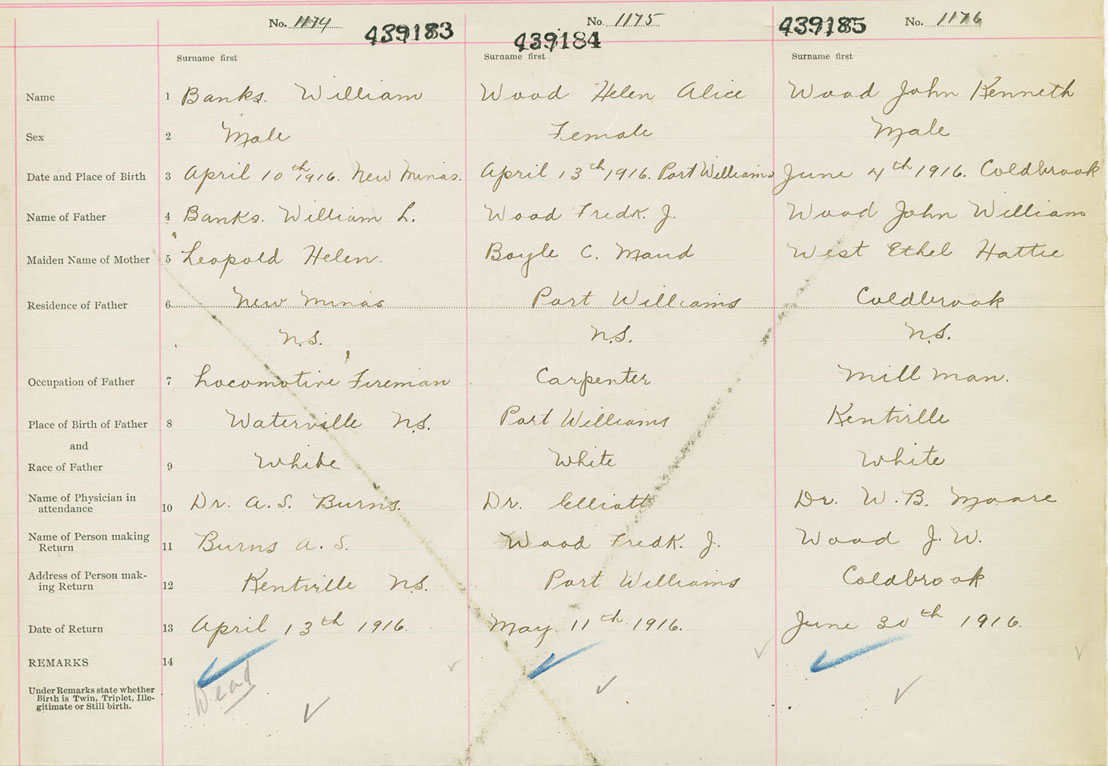 No. 1174 No. 1175 No. 1176
439183 439184 439185
Surname first Surname first Surname first
Name 1 Banks. William Wood Helen Alice Wood John Kenneth
Sex 2 Male Female Male
Date and Place of Birth 3 April 10th 1916. New Minas. April 13th 1916. Port Williams June 4th 1916. Coldbrook
Name of Father 4 Banks. William L. Wood Fredk. J. Wood John William
Maiden Name of Mother 5 Leopold Helen. Boyle C. Maud West Ethel Hattie
Residence of Father 6 New Minas Port Williams Coldbrook
N.S. N.S. N.S.
Occupation of Father 7 Locomotive Fireman Carpenter Mill man.
Place of Birth of Father 8 Waterville N.S. Port Williams Kentville
and
Race of Father 9 White White White
Name of Physician in
attendance 10 Dr. A.S. Burns. Dr. Elliott Dr. W.B. Moore
Name of Person making
Return 11 Burns A.S. Wood Fredk. J. Wood J.W.
Address of Person mak-
ing Return 12 Kentville N.S. Port Williams Coldbrook
Date of Return 13 April 13th 1916. May 11th 1916. June 30th 1916.
REMARKS 14
Dead
Under Remarks state whether
Birth is Twin, Triplet, Ille-
gitimate or Still birth.